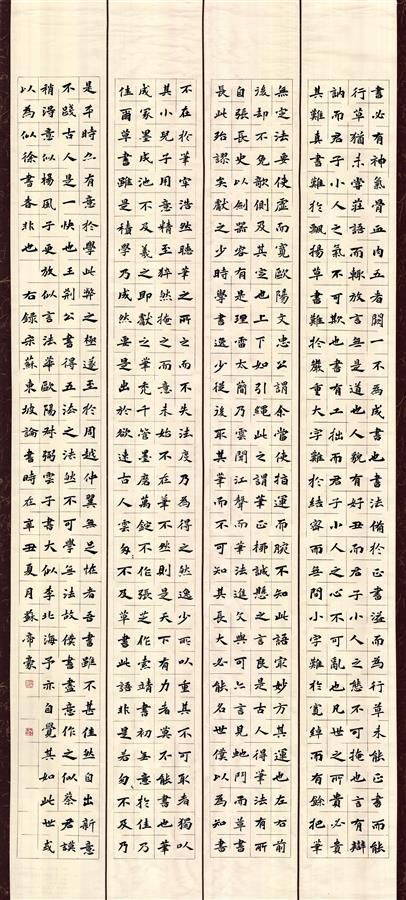 書必有神氣骨血肉五者闕一不為成書也書法備於正書溢而為行草未能正書而能
行草猶未嘗莊語而輒放言無是道也人貌有好丑而君子小人之態不可掩也言有辯
訥而君子小人之氣不可欺也書有工拙而君子小人之心不可亂也凡世之所貴必貴
其難真書難於飄揚草書難於嚴重大字難於結密而無間小字難於寬綽而有餘把筆
無定法要使虛而寬歐陽文忠公謂余當使指運而腕不知此語最妙方其運也左右前
後却不免欹側及其定也上下如引繩此之謂筆正柳誠懸之言良是古人得筆法有所
自張長史以劍器容有是理雷太簡乃雲聞江聲而筆法進文與可亦言見蛇鬥而草書
長此殆謬矣獻之少時學書逸少從後取其筆而不可知其長大必能名世僕以為知書
不在於筆牢浩然聽筆之所之而不失法度乃為得之然逸少所以重其不可取者獨以
其小兒子用意精至猝然掩之而意未始不在筆不然則是天下有力者莫不能書也筆
成冢墨成池不及羲之即獻之筆禿千管墨磨萬錠不作張芝作索靖書初無意於佳乃
佳爾草書雖是積學乃成然要是出於欲速古人雲匆〻不及草書此語非是若匆〻不及乃
是平時亦有意於學此弊之極遂至於周越仲翼無足怪者吾書雖不甚佳然自出新意
不踐古人是一快也王荊公書得五法之法然不可學無法故僕書盡意作之似蔡君謨
稍得意似楊風子更放似言法華歐陽叔弼雲子書大似李北海予亦自覺其如此世或
以為似徐書者非也 右錄宋蘇東坡論書時在辛丑夏月蘇帝豪